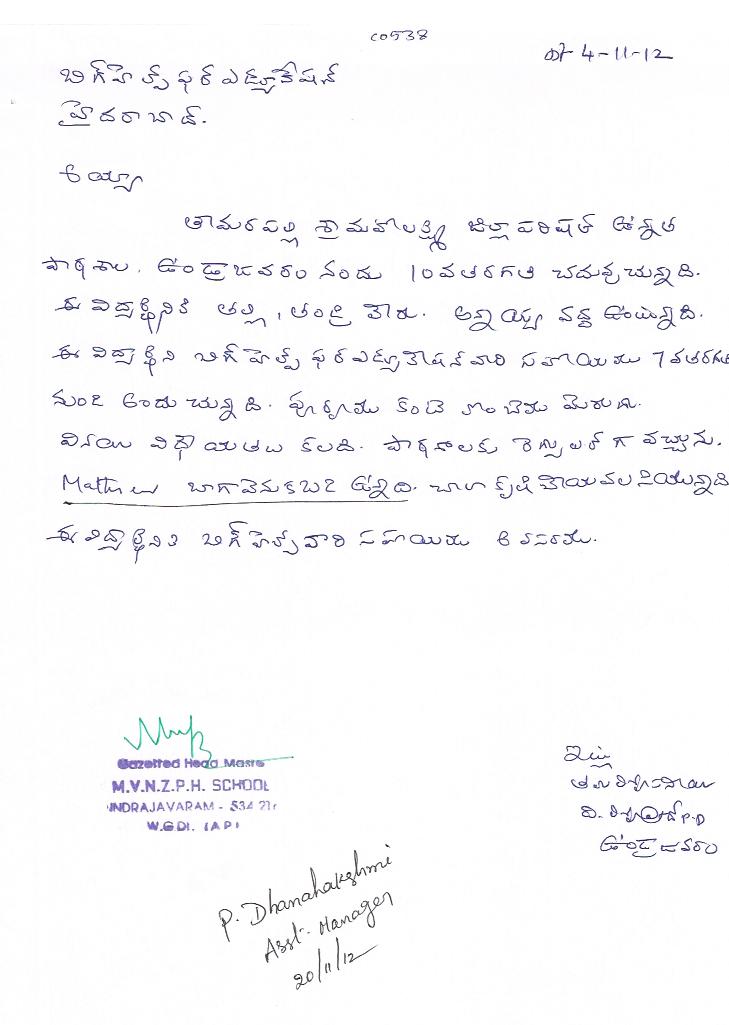 C0538
Dt 4-11-12
బిగ్ హెల్ప్ ఫర్ ఎడ్యుకేషన్
హైదరాబాద్.
అయ్యా
తామరపల్లి శ్రీమహాలక్ష్మి జిల్లా పరిషత్ ఉన్నత
పాఠశాల, ఉండ్రాజవరం నందు 10వతరగతి చదువుచున్నది.
ఈ విద్యార్థినికి తల్లి, తండ్రి లేరు. అన్నయ్య వద్ద ఉంటున్నది.
ఈ విద్యార్థిని బిగ్ హెల్ప్ ఫర్ ఎడ్యుకేషన్ వారి సహాయము 7వతరగతి
నుండి అందుచున్నది. పూర్వము కంటె కొంచెము మెరుగు.
వినయ విధేయతలు కలది. పాఠశాలకు రెగ్యులర్ గా వచ్చును.
Maths లో బాగా వెనుకబడి ఉన్నది. చాలా కృషి చేయవలసియున్నది
ఈ విద్యార్థినికి బిగ్ హెల్ప్ వారి సహాయము అవసరము.
Gazetted Head Maste
M.V.N.Z.P.H. SCHOOL
UNDRAJAVARAM - 534 21
W.G.Dt. (A.P)
ఇట్లు
P.D
ఉండ్రాజవరం
P. Dhanalakshmi
Asst. Manager
20/11/12